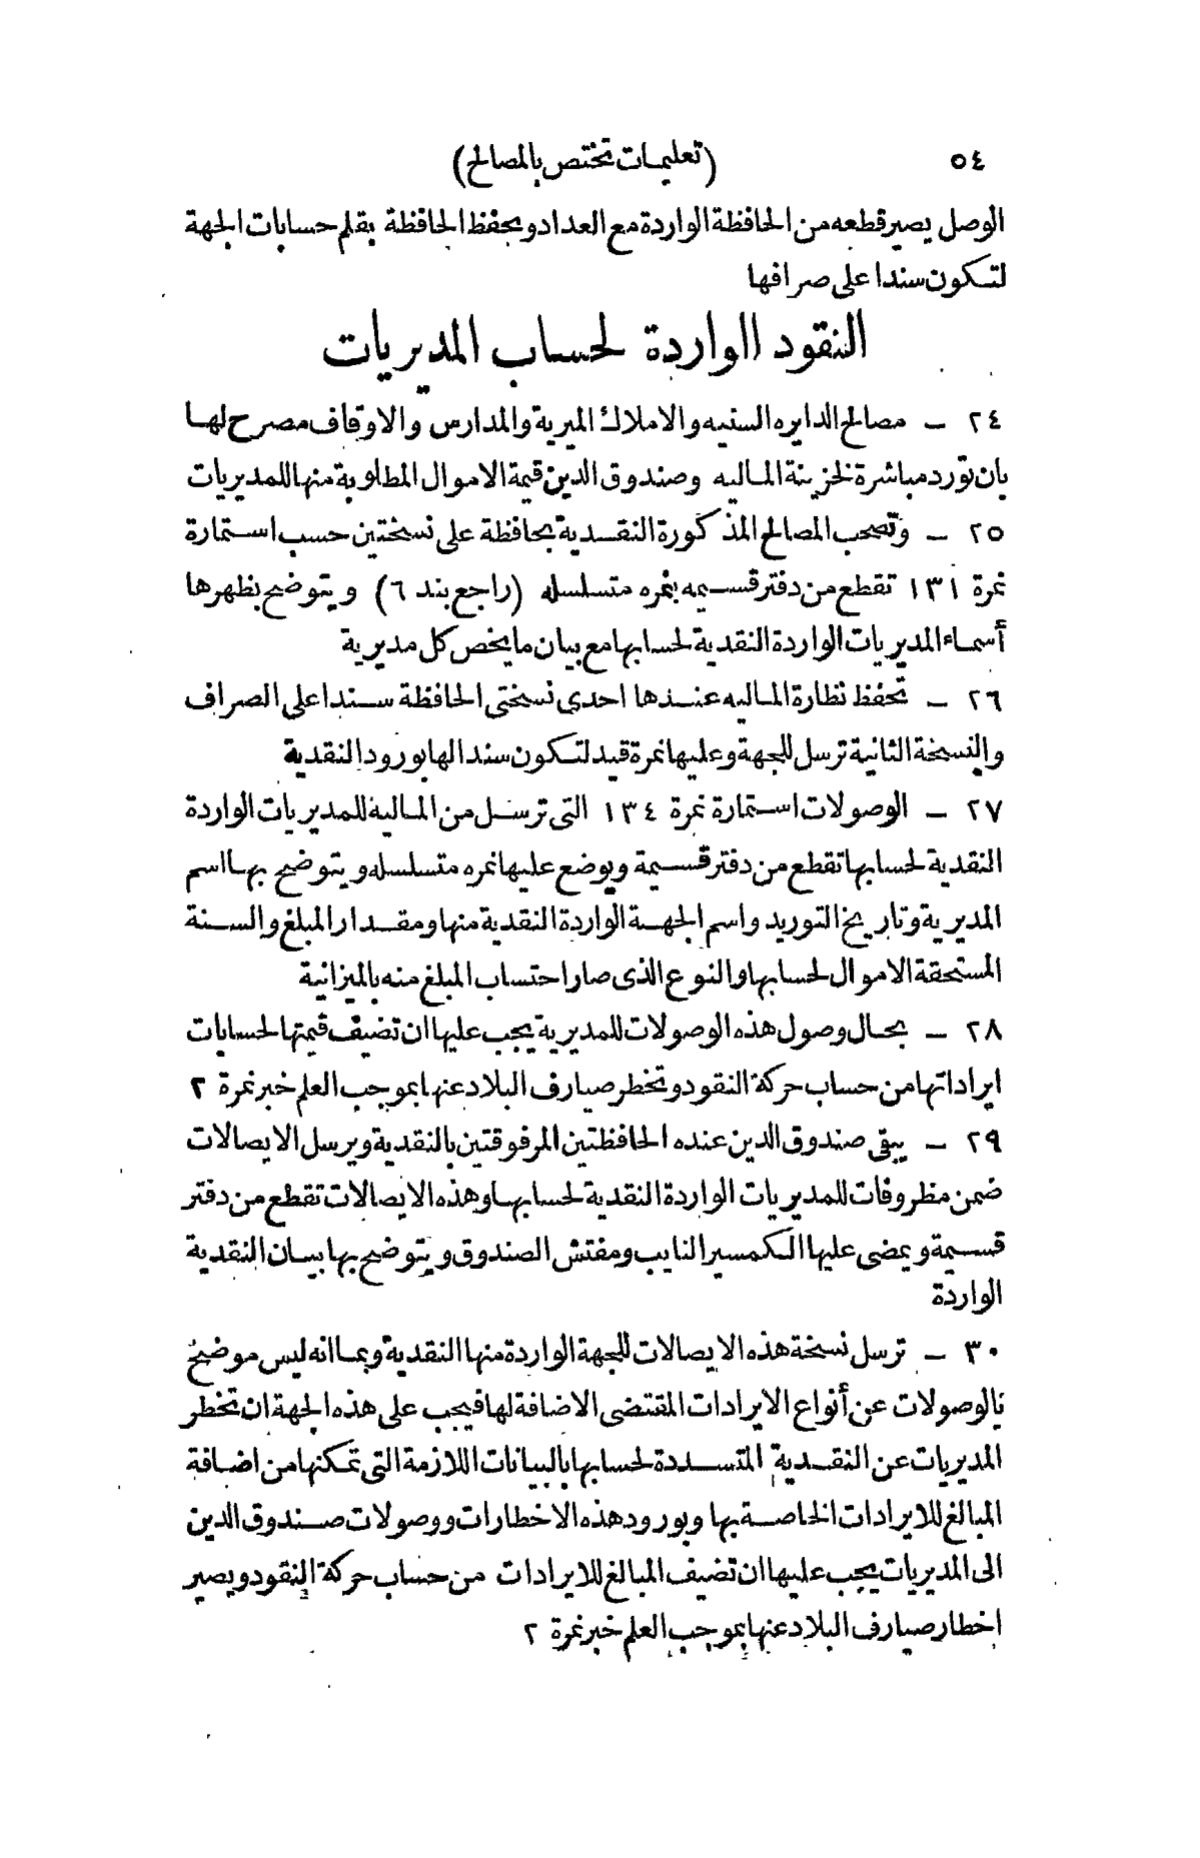 ٥٤ (تعليمات تختص بالمصالح)
الوصل يصير قطعه من الحافظة الواردة مع العداد ويحفظ الحافظة بقلم حسابات الجهة
لتكون سندا على صرافها
النقود الواردة لحساب المديريات
٢٤ – مصالح الدايره السنيه والاملاك الميرية والمدارس والاوقاف مصرح لها
بان تورد مباشرة لخزينة الماليه وصندوق الدين قيمة الاموال المطلوبة منها للمديريات
٢٥ – وتصحب المصالح المذكورة النقدية بحافظة على نسختين حسب استمارة
نمرة ١٣١ تقطع من دفتر قسيمه بنمره متسلسله (راجع بند ٦) ويتوضح بظهرها
أسماء المديريات الواردة النقدية لحسابها مع بيان ما يخص كل مديرية
٢٦ – تحفظ نظارة الماليه عندها احدى نسختى الحافظة سندا على الصراف
والنسخة الثانية ترسل للجهة وعليها نمرة قيد لتكون سندا لها بورود النقدية
٢٧ – الوصولات استمارة نمرة ١٣٤ التى ترسل من الماليه للمديريات الواردة
النقدية لحسابها تقطع من دفتر قسيمة ويوضع عليها نمره متسلسله ويتوضح بها اسم
المديرية وتاريخ التوريد واسم الجهة الواردة النقدية منها ومقدار المبلغ والسنة
المستحقة الاموال لحسابها والنوع الذى صار احتساب المبلغ منه بالميزانية
٢٨ – بحال وصول هذه الوصولات للمديرية يجب عليها ان تضيف قيمتها لحسابات
ايراداتها من حساب حركة النقود وتخطر صيارف البلاد عنها بموجب العلم خبر نمرة ٢
٢٩ – يبقى صندوق الدين عنده الحافظتين المرفوقتين بالنقدية ويرسل الايصالات
ضمن مظروفات للمديريات الواردة النقدية لحسابها وهذه الايصالات تقطع من دفتر
قسيمة ويمضى عليها الكمسير النايب ومفتش الصندوق ويتوضح بها بيان النقدية
الواردة
٣٠ – ترسل نسخة هذه الايصالات للجهة الواردة منها النقدية وبما انه ليس موضح
بالوصولات عن أنواع الايرادات المقتضى الاضافة لها فيجب على هذه الجهة ان تخطر
المديريات عن النقدية المتسددة لحسابها بالبيانات اللازمة التى تمكنها من اضافة
المبالغ للايرادات الخاصة بها وبورود هذه الاخطارات ووصولات صندوق الدين
الى المديريات يجب عليها ان تضيف المبالغ للايرادات من حساب حركة النقود ويصير
اخطار صيارف البلاد عنها بموجب العلم خبر نمرة ٢